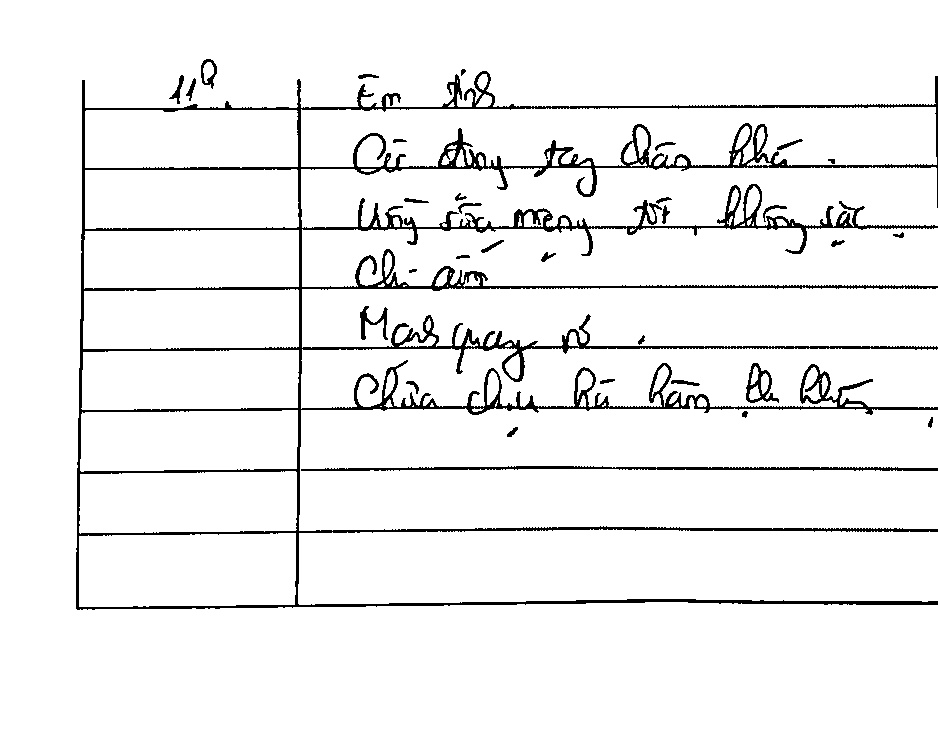 11h.
Em tỉnh.
Cử động tay chân khá.
Uống sữa miệng tốt, không sặc.
Chi ấm
Mạch quay rõ.
Chưa chịu há hàm